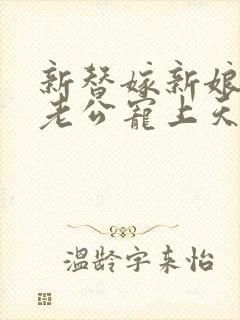 新替嫁新娘
老公宠上天
温龄字来怡